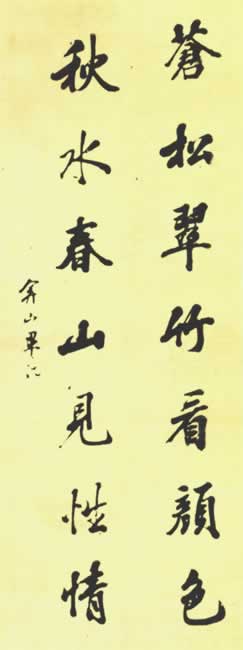 蒼松翠竹看顏色
秋水春山見性情
弇山畢沅